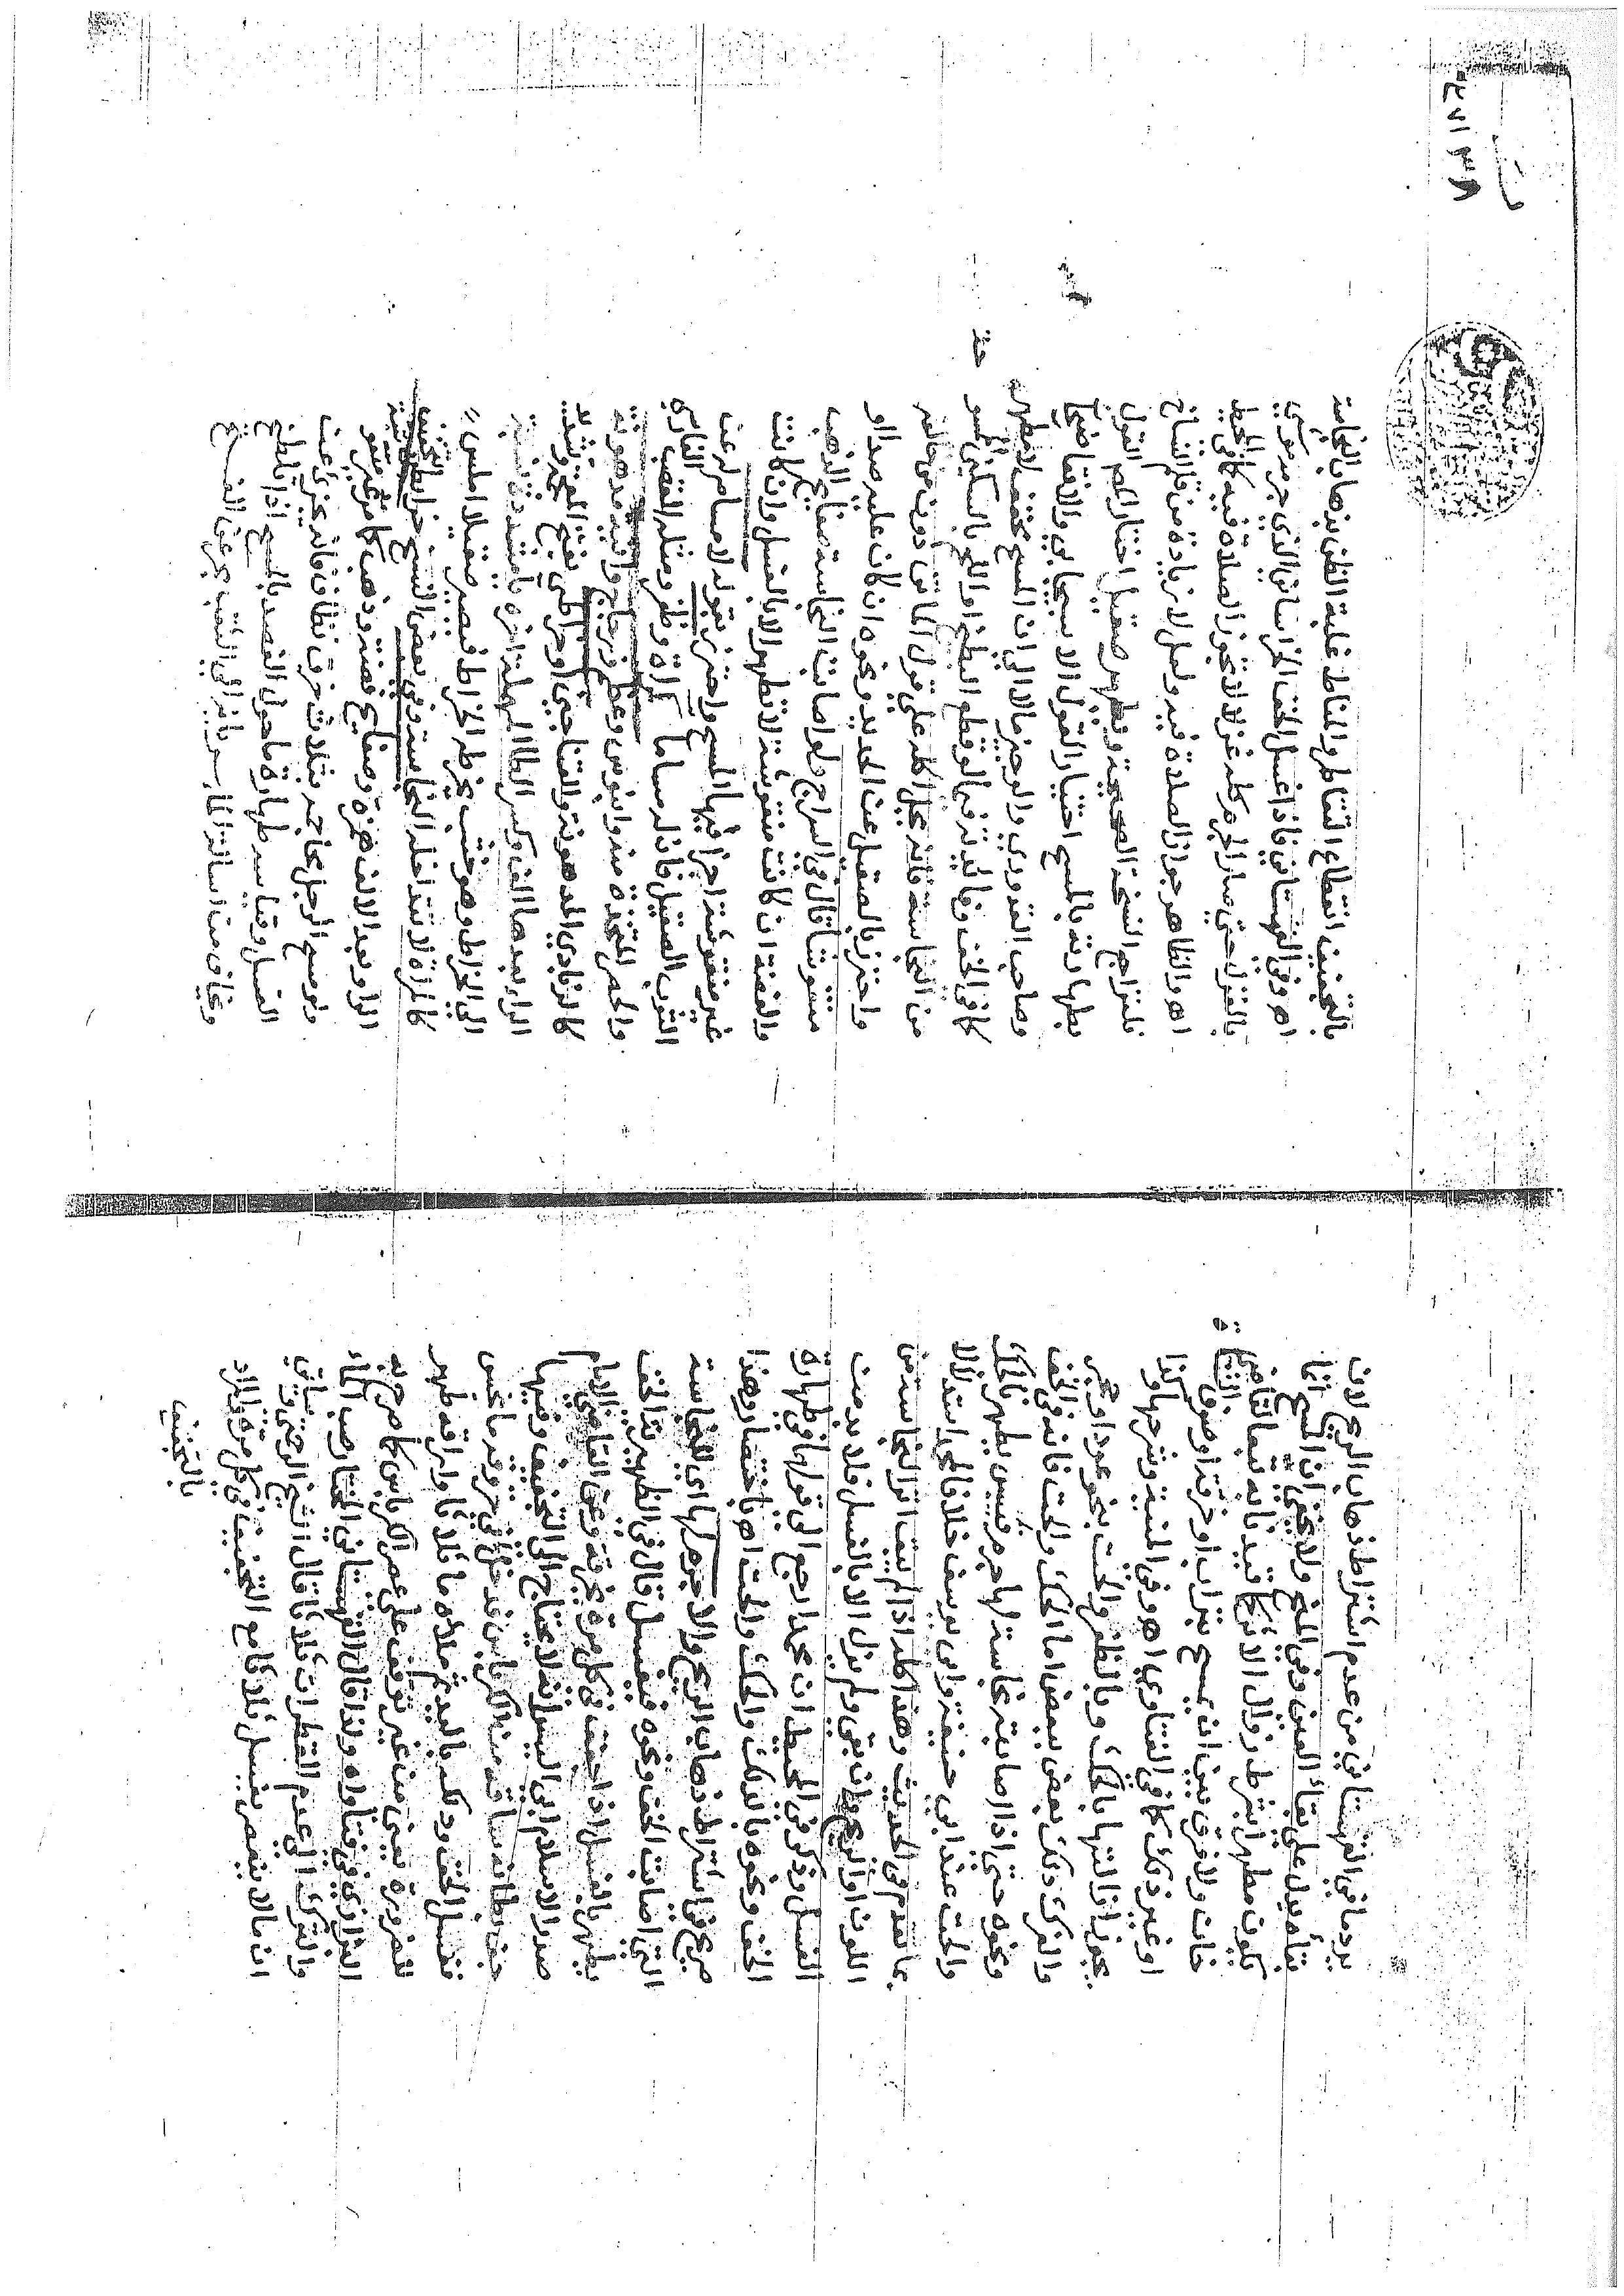 يرد ما في القهستاني من عدم اشتراط ذهاب الريح لان
على بقاء العين وفي المنح ولا يخفى ان المسح انما
يكون مطهرا بشرط زوال الاثر كما قيد به
خان ولا فرق بين ان يمسح بتراب او خرقة او صوف الشاة
او غير ذلك كما في الفتاوى اهـ وفي المنية وشرحها وكذا
يجوز ازالتها بالحك وبالظفر والحت بنحو عود او حجر
والفرك دلك بعض ببعض اما الحك والحت فانه في الخف
ونحوه حتى اذا اصابته نجاسة لها جرم فيبس يطهر بالحك
والحت عند ابي حنيفة وابي يوسف خلافا لمحمد استدلالا
بما تقدم في الحديث وهذا كله اذا لم يبق اثر النجاسة من
اللون او الريح وان بقي ولم يزل الا بالغسل فلا بد من
الغسل وذكر في المحيط ان محمدا رجع الى قولهما في طهارة
الخف ونحوه بالدلك والحك والحت اهـ باختصار وهذا
صريح في اشتراط ذهاب الريح والا جرم لها اي النجاسة
التي اصابت الخف ونحوه فيغسل قال في الظهيرية الخف
يطهر بالغسل اذا جفف في كل مرة بخرقة وعن القاضي الامام
صدر الاسلام ابي اليسر انه لا يحتاج الى التجفيف وفيها
خف بطانة ساقه من الكرباس فدخل في خروقه ماء نجس
فغسل الخف ودلكه باليد ثم ملأه ماء ثلاثا واراقه طهر
للضرورة يعني من غير توقف على عصر الكرباس كما صرح به
البزازي في فتاواه ولذا قال القهستاني المختار صب الماء
والترك الى عدم القطران ثلاثا قال الشيخ الرحمتي وسياتي
ان ما لا ينعصر يغسل ثلاثا مع التجفيف في كل مرة والمراد
بالتجفيف
بالتجفيف انقطاع التقاطر والمناط غلبة الظن بذهاب النجاسة
اهـ وفي القهستاني فاذا غسل الخف الخراساني الذي جرمه موشى
بالغزل حتى صار كله غزلا لا تجوز الصلاة فيه كما في المحيط
اهـ والظاهر جواز الصلاة فيه ولعل لا زيادة من قلم النساخ
فلتراجع النسخ الصحيحة ويطهر صقيل اختار القول
بطهارته بالمسح اختيار القول الاسبيجابي والاقتصار
وصاحب القدوري والوجيز مالا الى ان المسح مخفف لا مطهر
كما في الخف وفائدته في لو قطع البطيخ او اللحم بالسكين الممسوح
من النجاسة فانه يحل اكله على قول الماتن دون من خالفه
واحترز بالصقيل عن الحديد ونحوه ان كان عليه صدا او
منقوشا قال في السراج ولو اصابت النجاسة صفايح الذهب
والفضة ان كانت منقوشة لا تطهر الا بالغسل وان كانت
غير منقوشة اجزا فيها المسح واحترز بقوله لا مسام له عن
الثوب الصقيل فان له مساما كمراة وظفر ومثله القصب الفارسي
والحصر المتخذة منه وابنوس وعظم وزجاج وانية مدهونة
كالزبادي المدهونة والقناجين او خراطي بفتح المعجمة وتشديد
الراء بعدها الف وكسر الطاء المهملة اخره ياء مشددة نسبة
الى الخراط وهو خشب يخرطه الخراط فيصير صقيلا املس
كالمرآة لا تتداخله النجاسة وفي بعض النسخ خرائطي
الراء وبعد الالف همزة وصفايح فضة وذهب كما مر غير منقوش
وموضع الرجل محاجمه بثلاث خرق نظاف فانه يجزئ عن
الغسل وقياسه طهارة ما حول الفصد بالمسح اذا تلطخ
ويخاف من اسالة الماء سريانه الى الثقب بحر عن الفتح